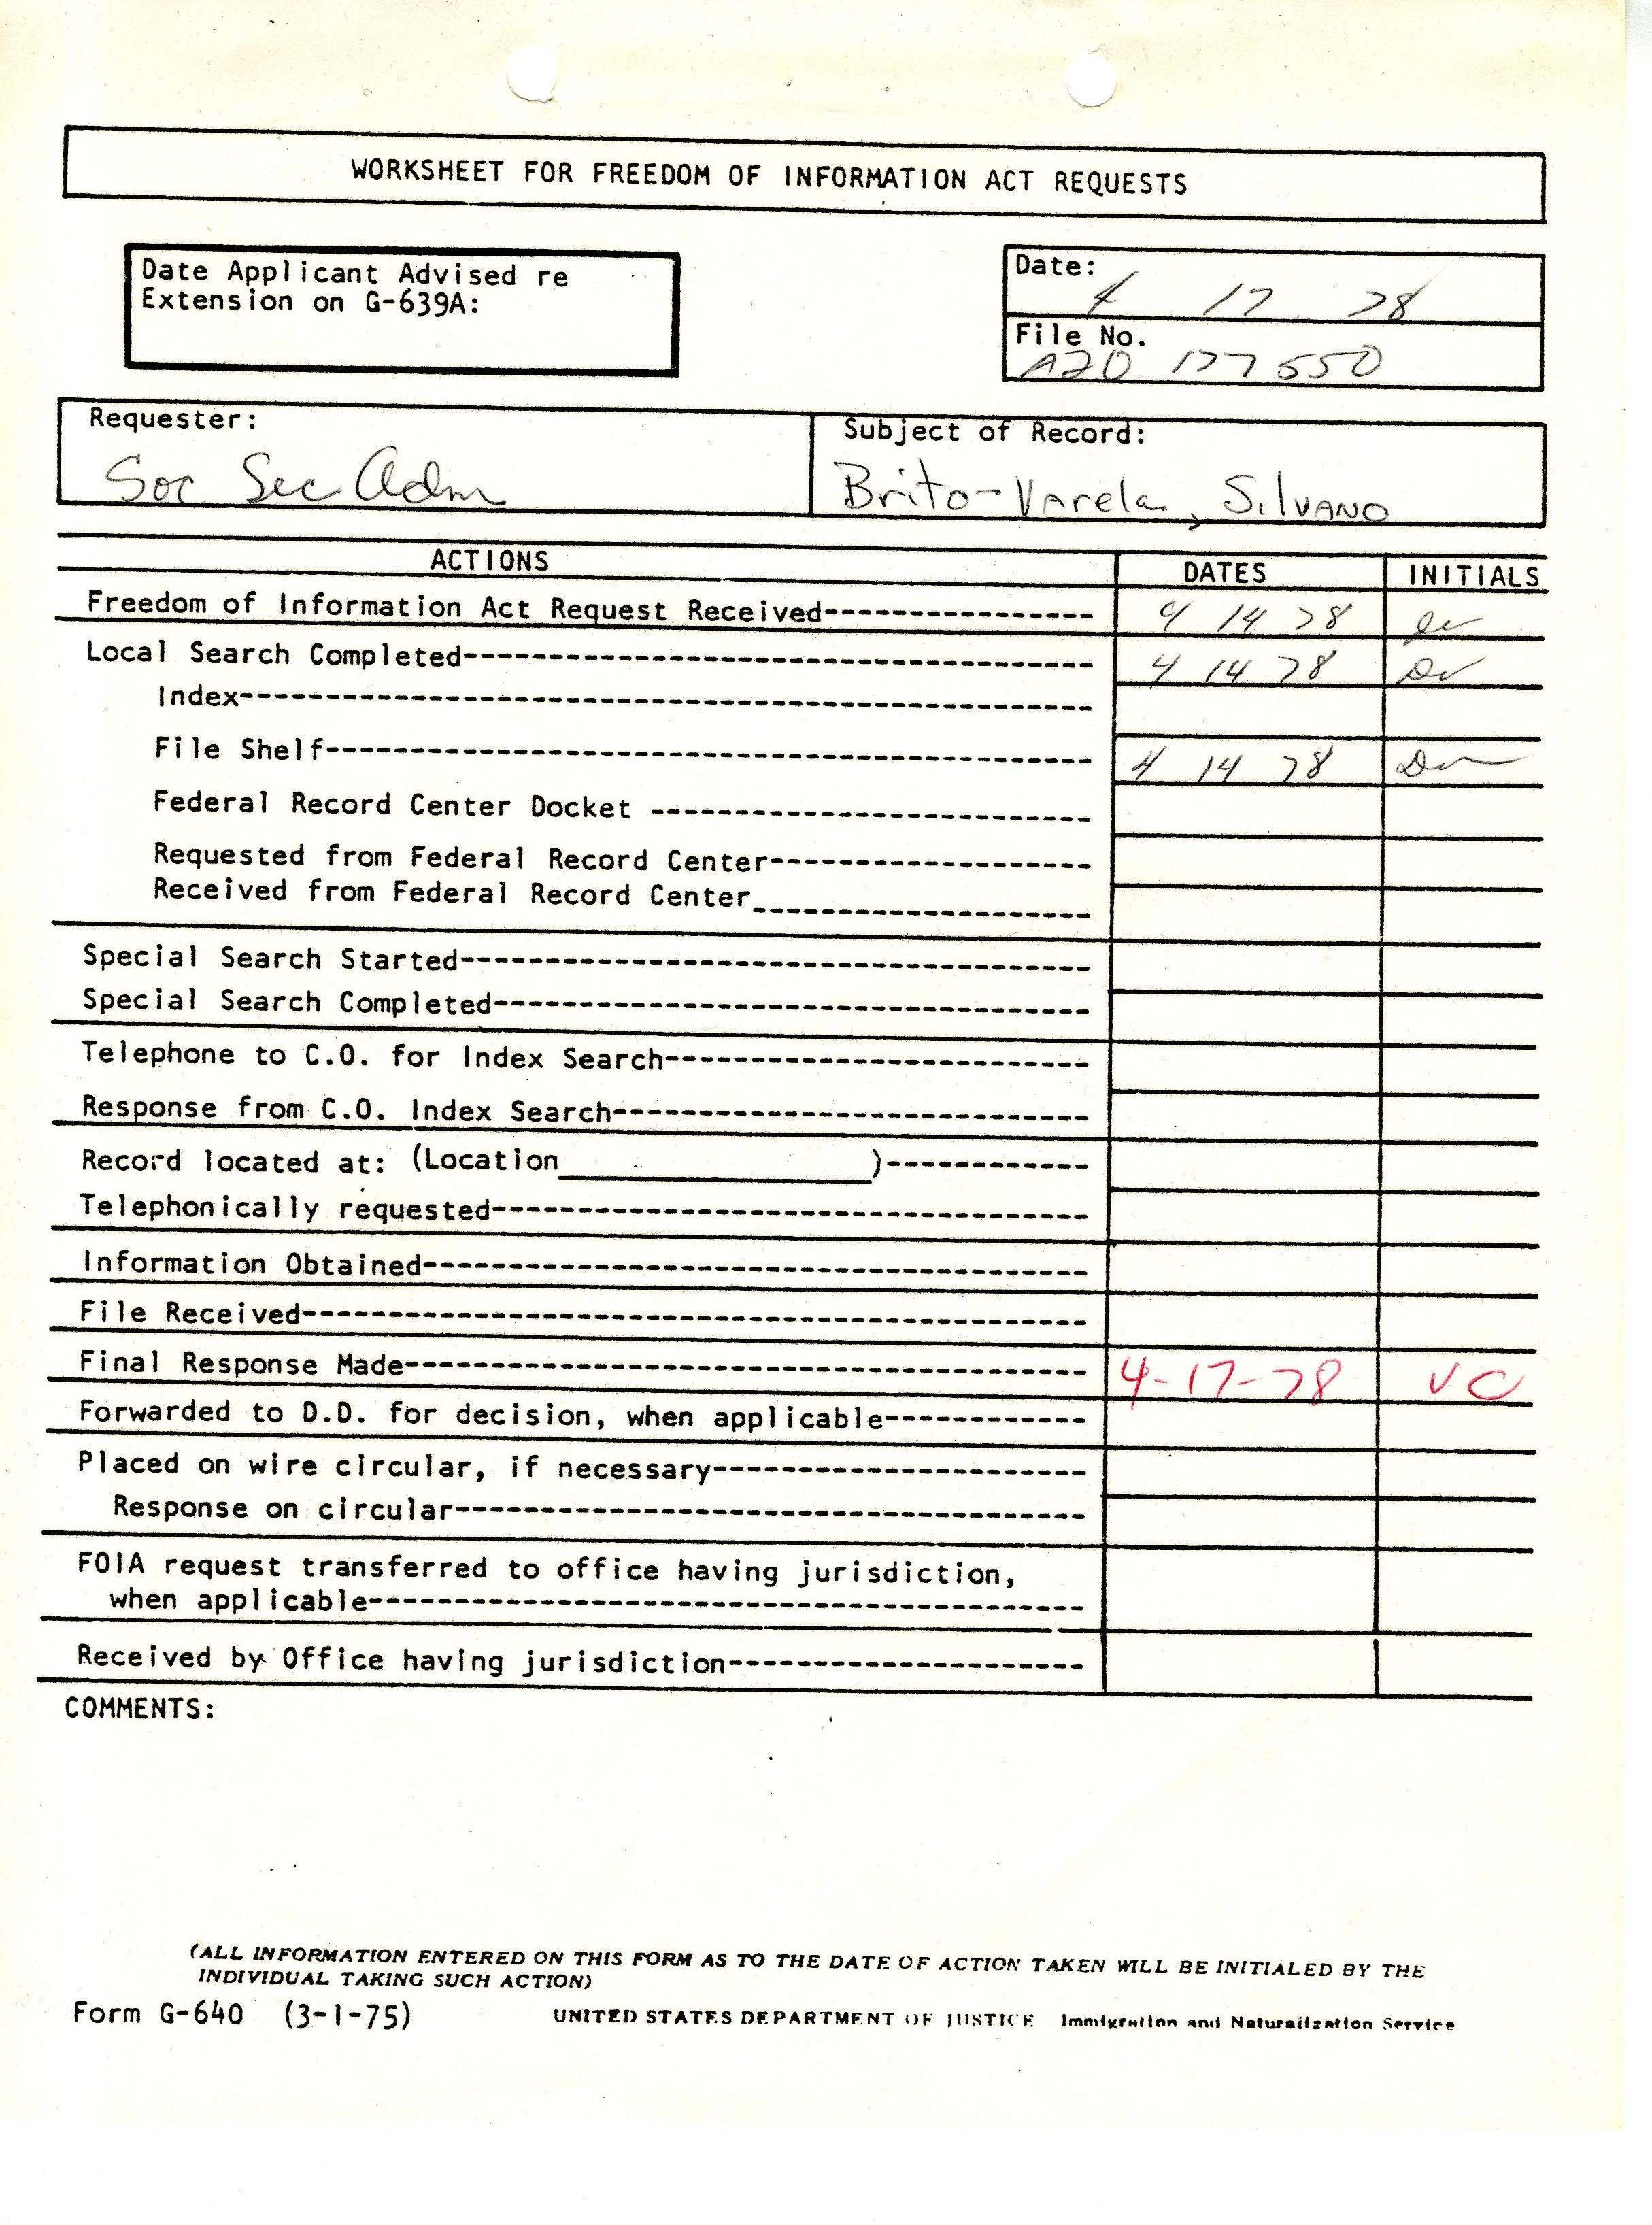 WORKSHEET FOR FREEDOM OF INFORMATION ACT REQUESTS
Date Applicant Advised re
Extension on G-639A:
Date:
4 17 78
File No.
A20 177 550
Requester:
Soc Sec Adm
Subject of Record:
Brito-Varela, Silvano
ACTIONS DATES INITIALS
Freedom of Information Act Request Received---------------- 4 14 78
Local Search Completed------------------------------------- 4 14 78
Index--------------------------------------------------
File Shelf--------------------------------------------- 4 14 78
Federal Record Center Docket --------------------------
Requested from Federal Record Center-------------------
Received from Federal Record Center____________________
Special Search Started-------------------------------------
Special Search Completed-----------------------------------
Telephone to C.O. for Index Search-------------------------
Response from C.O. Index Search----------------------------
Record located at: (Location__________________)------------
Telephonically requested-----------------------------------
Information Obtained---------------------------------------
File Received----------------------------------------------
Final Response Made---------------------------------------- 4-17-78 VC
Forwarded to D.D. for decision, when applicable------------
Placed on wire circular, if necessary----------------------
Response on circular-------------------------------------
FOIA request transferred to office having jurisdiction,
when applicable------------------------------------------
Received by Office having jurisdiction---------------------
COMMENTS:
(ALL INFORMATION ENTERED ON THIS FORM AS TO THE DATE OF ACTION TAKEN WILL BE INITIALED BY THE
INDIVIDUAL TAKING SUCH ACTION)
Form G-640 (3-1-75) UNITED STATES DEPARTMENT OF JUSTICE Immigration and Naturalization Service